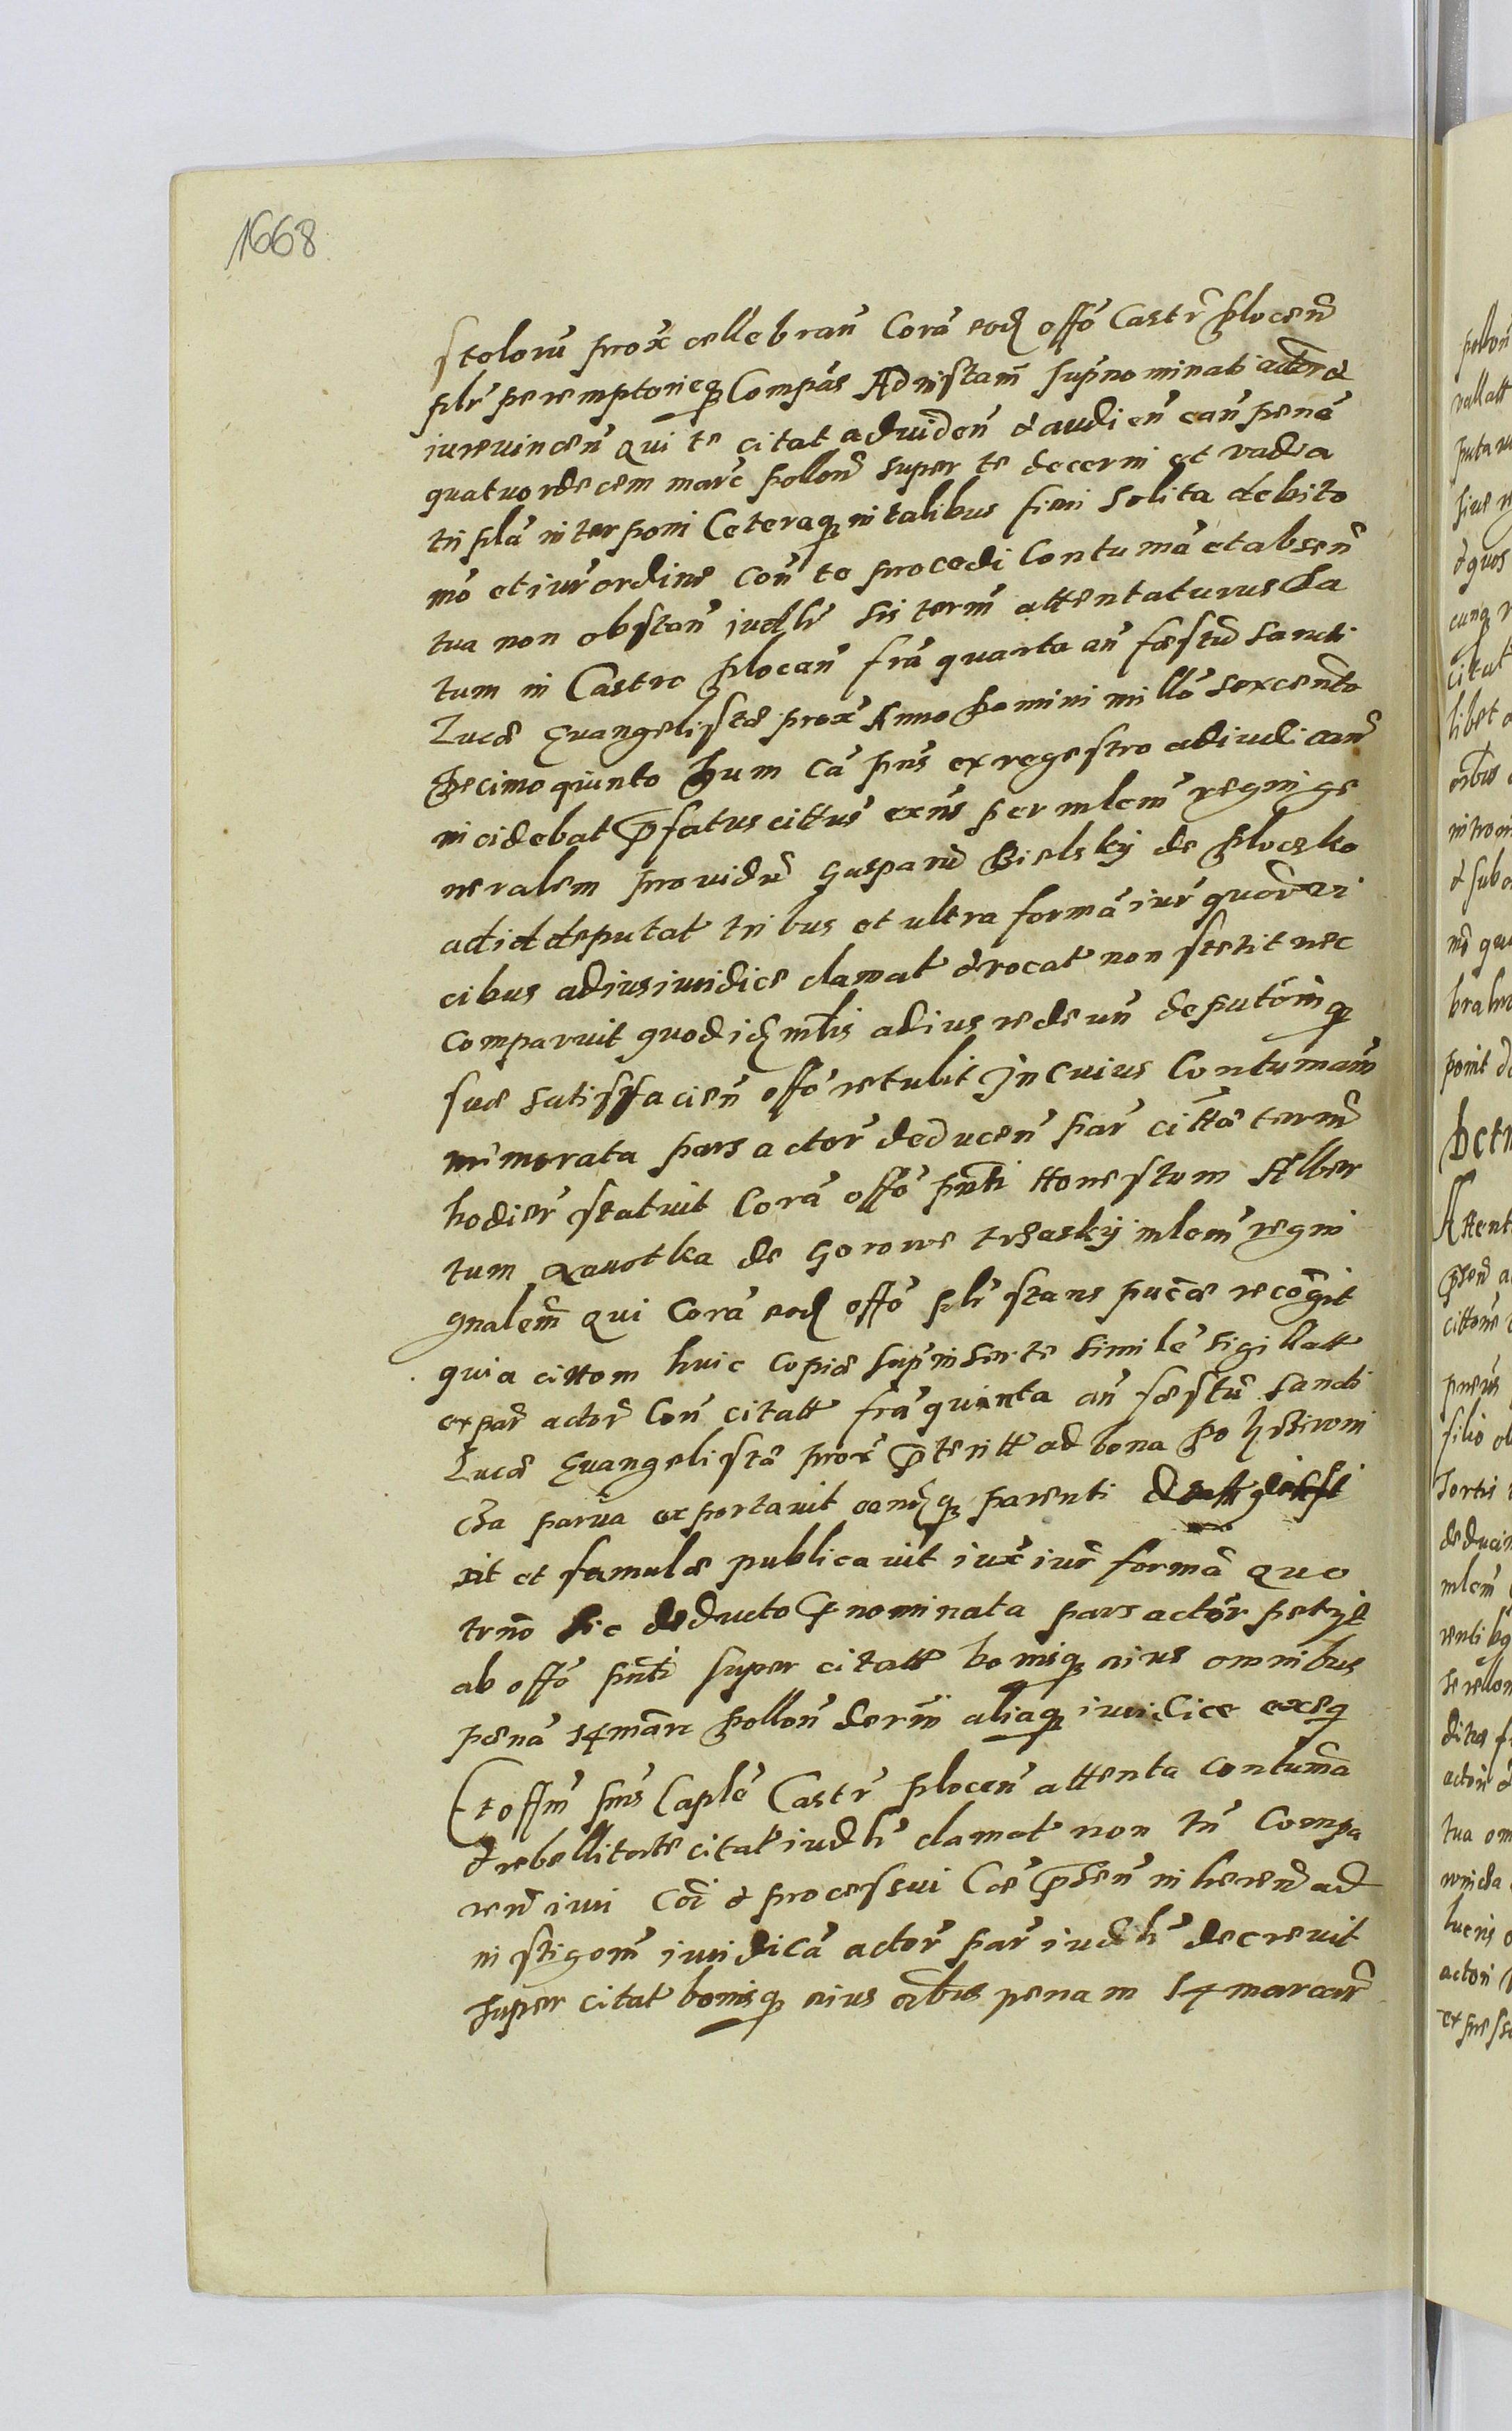 1668
stolorũ prox̃ cellebrań Corã eod offõ Castr̃ Plocen̄
plr̃ peremptorieq̃ Compãs Ad instam̃ supnominati actor &
iurevincen̄ qui te citat ad viden̄ & audien̄ ean̄ penã
quatuordecem marc̃ pollon̄ super te decerni et vadia
triplã interponi Ceteraq̃ in talibus fieri solita debito
mõ et iur̃ ordine Con̄ te procedi Contumã et absen̄
tua non obstan̄ iudlr̃ sis term̄ attentaturus Da
tum in Castro Plocen̄ frã quarta an̄ festũ Sancti
Lucæ Evangelistæ prox̃ Anno Domini millõ sexcento
Decimo quinto Dum cã pñs ex regestro adiudican̄
incidebat p̃fatus cittus̃ exñs per mlem̃ regni ge
neralem providũ Gasparũ Bielsky de Ploczko
ad id deputat tribus et ultra formã iur̃ quor̃ vi
cibus ad ius iuridice clamat & vocat non stetit nec
comparuit quod id mlis ad ius redeun̄ deputõniq̃
suæ satisfacien̄ offõ retulit In cuius Contumam̃
memorata pars actor̃ deducen̄ par̃ cittæ term̄
hodier̃ statuit Corã offõ pñti Honestum Alber
tum Xavotka de Gorowe trzasky mlem̃ regni
gnalem̃ qui Corã eod offõ plr̃ stans puc̃æ recõgit
quia cittom huic copiæ sup inserte similẽ sigillatt
ex par̃ actor̃ Con̄ citatt frã quinta an̄ festũ Sancti
Lucæ Evangelistæ prox̃ p̃teritt ad bona
parva exportavit eandq̃ parenti
sit et famulæ publicavit iux̃ iur̃ formã quo
trño sic deducto p̃nominata pars actor̃ petyt
ab offõ pñti super citatt bonisq̃ eius omnibus
penã 14 marc̃ pollon̄ derni aliaq̃ iuridice exeq
Et offm̃ pñs Caplẽ Castr̃ Plocen̄ attenta contumã
& rebellitate citat iudlr̃ clamat non tñ Compa
ren̄ iuri Coi & processui Cæ p̃sen̄ inheren̄ ad
instigom̃ iuridicã actor̃ par̃ iudlr̃ decrevit
super citat bonisq̃ eius oĩbus penam 14 marcar̃